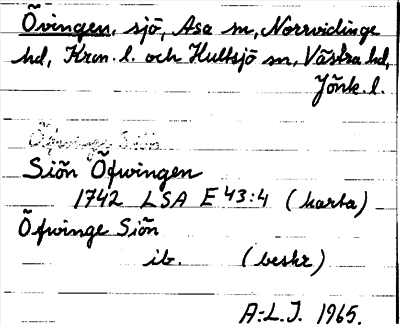 Övingen, sjö, Asa sn, Norrvidinge
hd, Kron. l. och Hultsjö sn, Västra hd,
Jönk. l.
Öfwinge Siön
Siön Öfwingen
1742 LSA E 43:4 (karta)
Öfwinge Siön
ib. (beskr)
A.-L.J. 1965.